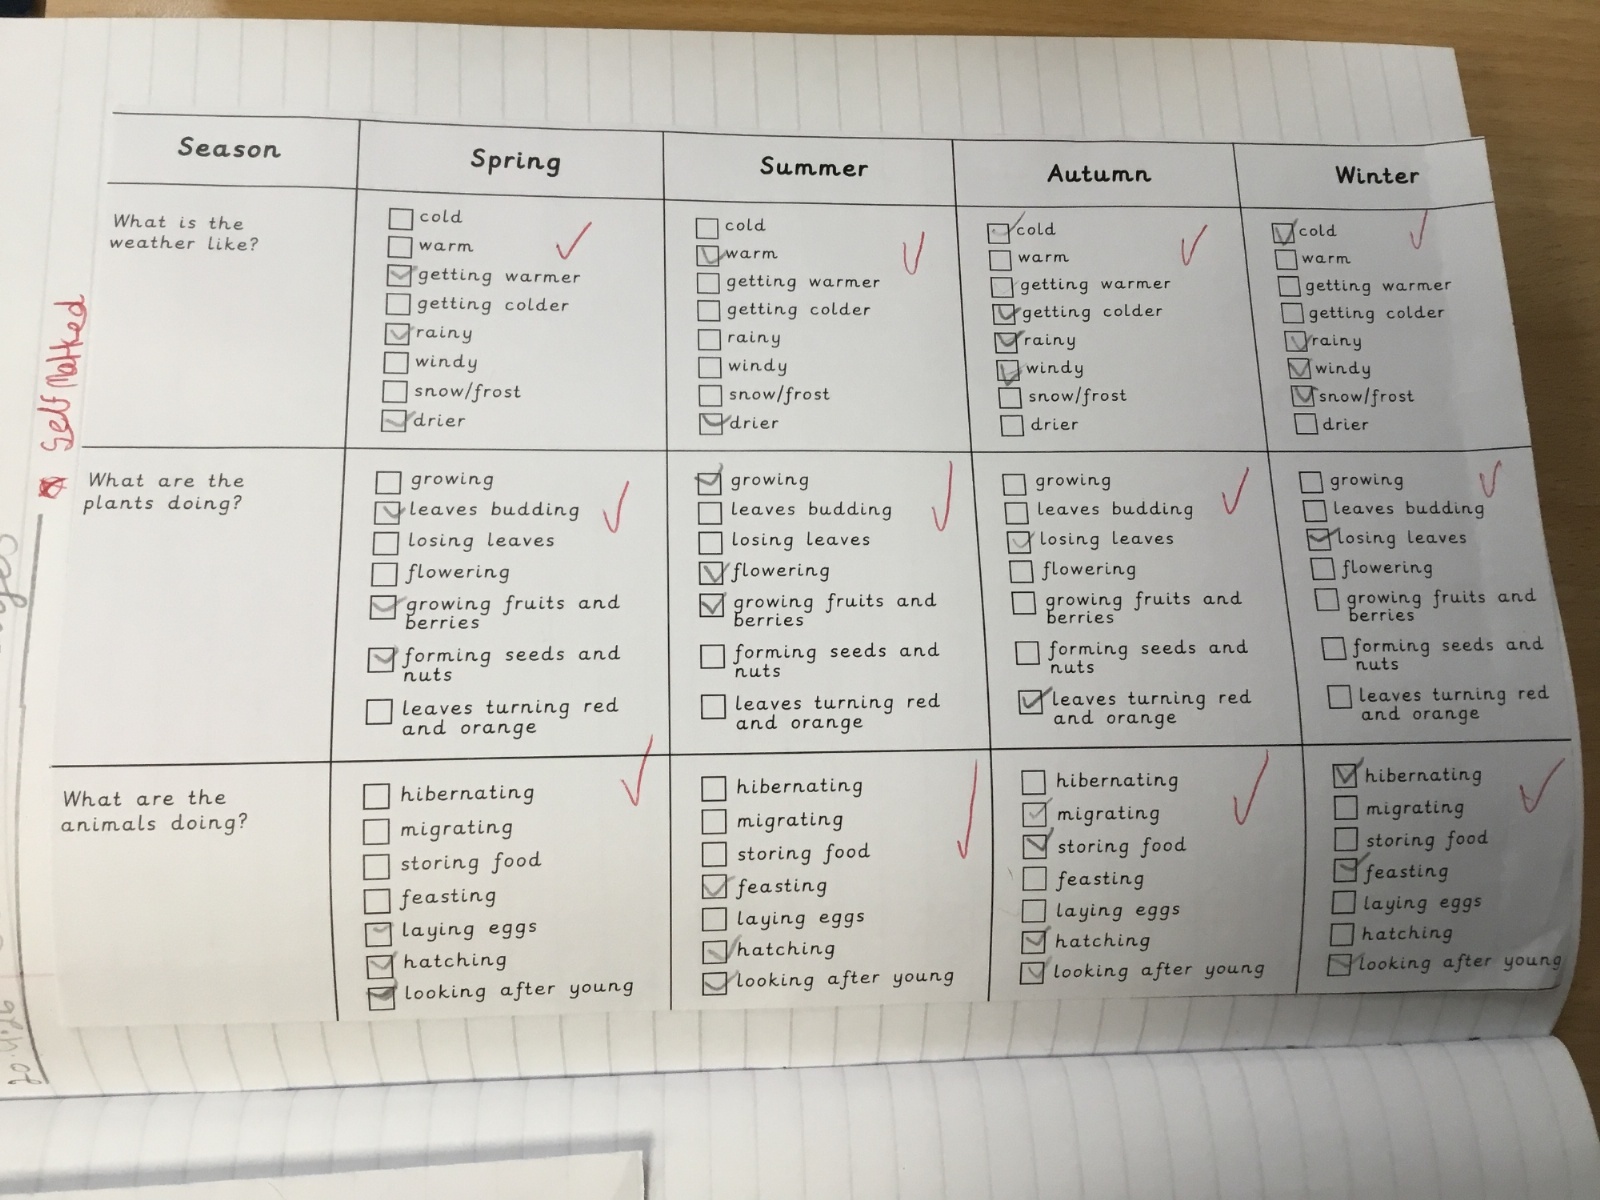 Season
Spring
Summer
Autumn
Winter
What is the
weather like?
cold
warm
getting warmer
getting colder
rainy
windy
snow/frost
drier
cold
warm
getting warmer
getting colder
rainy
windy
snow/frost
drier
cold
warm
getting warmer
getting colder
rainy
windy
snow/frost
drier
cold
warm
getting warmer
getting colder
rainy
windy
snow/frost
drier
What are the
plants doing?
growing
leaves budding
losing leaves
flowering
growing fruits and
berries
forming seeds and
nuts
leaves turning red
and orange
growing
leaves budding
losing leaves
flowering
growing fruits and
berries
forming seeds and
nuts
leaves turning red
and orange
growing
leaves budding
losing leaves
flowering
growing fruits and
berries
forming seeds and
nuts
leaves turning red
and orange
growing
leaves budding
losing leaves
flowering
growing fruits and
berries
forming seeds and
nuts
leaves turning red
and orange
What are the
animals doing?
hibernating
migrating
storing food
feasting
laying eggs
hatching
looking after young
hibernating
migrating
storing food
feasting
laying eggs
hatching
looking after young
hibernating
migrating
storing food
feasting
laying eggs
hatching
looking after young
hibernating
migrating
storing food
feasting
laying eggs
hatching
looking after young
Self Marked